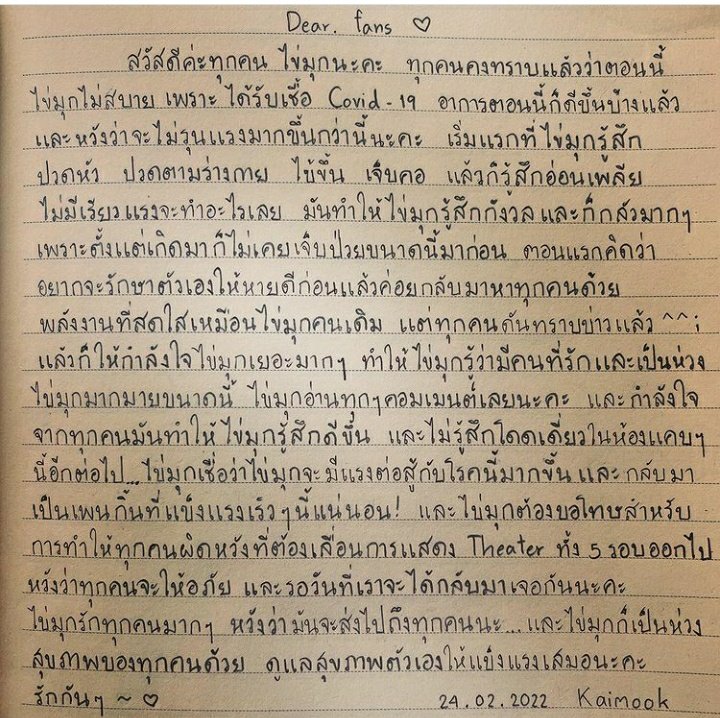 Dear. fans ♡
สวัสดีค่ะทุกคน ไข่มุกนะคะ ทุกคนคงทราบแล้วว่าตอนนี้
ไข่มุกไม่สบาย เพราะ ได้รับเชื้อ Covid-19 อาการตอนนี้ก็ดีขึ้นบ้างแล้ว
และหวังว่าจะไม่รุนแรงมากขึ้นกว่านี้นะคะ เริ่มแรกที่ไข่มุกรู้สึก
ปวดหัว ปวดตามร่างกาย ไข้ขึ้น เจ็บคอ แล้วก็รู้สึกอ่อนเพลีย
ไม่มีเรี่ยวแรงจะทำอะไรเลย มันทำให้ไข่มุกรู้สึกกังวลและก็กลัวมากๆ
เพราะตั้งแต่เกิดมาก็ไม่เคยเจ็บป่วยขนาดนี้มาก่อน ตอนแรกคิดว่า
อยากจะรักษาตัวเองให้หายดีก่อนแล้วค่อยกลับมาหาทุกคนด้วย
พลังงานที่สดใสเหมือนไข่มุกคนเดิม แต่ทุกคนดันทราบข่าวแล้ว ^^;
แล้วก็ให้กำลังใจไข่มุกเยอะมากๆ ทำให้ไข่มุกรู้ว่ามีคนที่รักและเป็นห่วง
ไข่มุกมากมายขนาดนี้ ไข่มุกอ่านทุกๆคอมเมนต์เลยนะคะ และกำลังใจ
จากทุกคนมันทำให้ไข่มุกรู้สึกดีขึ้น และไม่รู้สึกโดดเดี่ยวในห้องแคบๆ
นี้อีกต่อไป...ไข่มุกเชื่อว่าไข่มุกจะมีแรงต่อสู้กับโรคนี้มากขึ้นและกลับมา
เป็นเพนกิ้นที่แข็งแรงเร็วๆนี้แน่นอน! และไข่มุกต้องขอโทษสำหรับ
การทำให้ทุกคนผิดหวังที่ต้องเลื่อนการแสดง Theater ทั้ง 5 รอบออกไป
หวังว่าทุกคนจะให้อภัย และรอวันที่เราจะได้กลับมาเจอกันนะคะ
ไข่มุกรักทุกคนมากๆ หวังว่ามันจะส่งไปถึงทุกคนนะ...และไข่มุกก็เป็นห่วง
สุขภาพของทุกคนด้วย ดูแลสุขภาพตัวเองให้แข็งแรงเสมอนะคะ
รักกันๆ ~ ♡ 24.02.2022 Kaimook